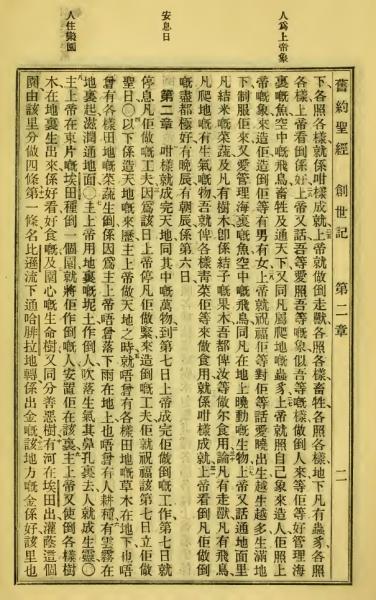 人爲上帝象
安息日
人住樂園
舊約聖經 創世記 第二章 二
下各照各樣就係咁樣成就上帝就做倒走獸各照各樣畜牲各照各樣地下凡有蟲豸各照
各樣上帝看倒係好上帝又話吾等愛照吾等嘅象似吾等嘅樣做倒人來等佢等好管理海
裏嘅魚空中嘅飛鳥畜牲及通天下又同凡屬爬地嘅蟲豸上帝就照自己象來造人佢照上
帝嘅象來造佢造倒佢等有男有女上帝就祝福佢等對佢等話愛曉出生越生越多生滿地
下制服佢來又愛管理海裏嘅魚空中嘅飛鳥同凡在地上曉動嘅生物上帝又話通地面里
凡結米嘅菜蔬及凡有樹木卽係結子嘅果木吾都俾汝等做尔食用論凡有走獸凡有飛鳥
凡爬地嘅有生氣嘅物吾就俾各樣靑菜佢等來做食用就係咁樣成就上帝看倒凡佢做倒
嘅盡都極好有晚辰有朝辰係第六日
第二章 咁樣就成完天地同其中嘅萬物到第七日上帝成完佢做倒嘅工作第七日就
停息凡佢做嘅工夫因爲該日上帝停凡佢做緊來造倒嘅工夫佢就祝福該第七日立佢做
聖日〇以下係造天地嘅來歷主上帝做天地之時就唔曾有各樣田地嘅草木在地下也唔
曾有各樣田地嘅菜蔬生倒係因爲主上帝唔曾落下雨在地上也唔曾有人耕種有雲霧在
地裏起滋潤通地面〇主上帝用地裏嘅坭土作倒人吹落生氣其鼻孔裏去人就成生靈〇
主上帝在東片嘅埃田種倒一個園就將佢作倒嘅人安置佢在該裏主上帝又使倒各樣樹
木在地裏生出來係好看好食嘅及園心嘅生命樹又同分善惡樹有河在埃田出灌蔭這個
園由該里分做四條第一條名比遜流下通哈腓拉地轉係出金嘅該地方嘅金係好該里也